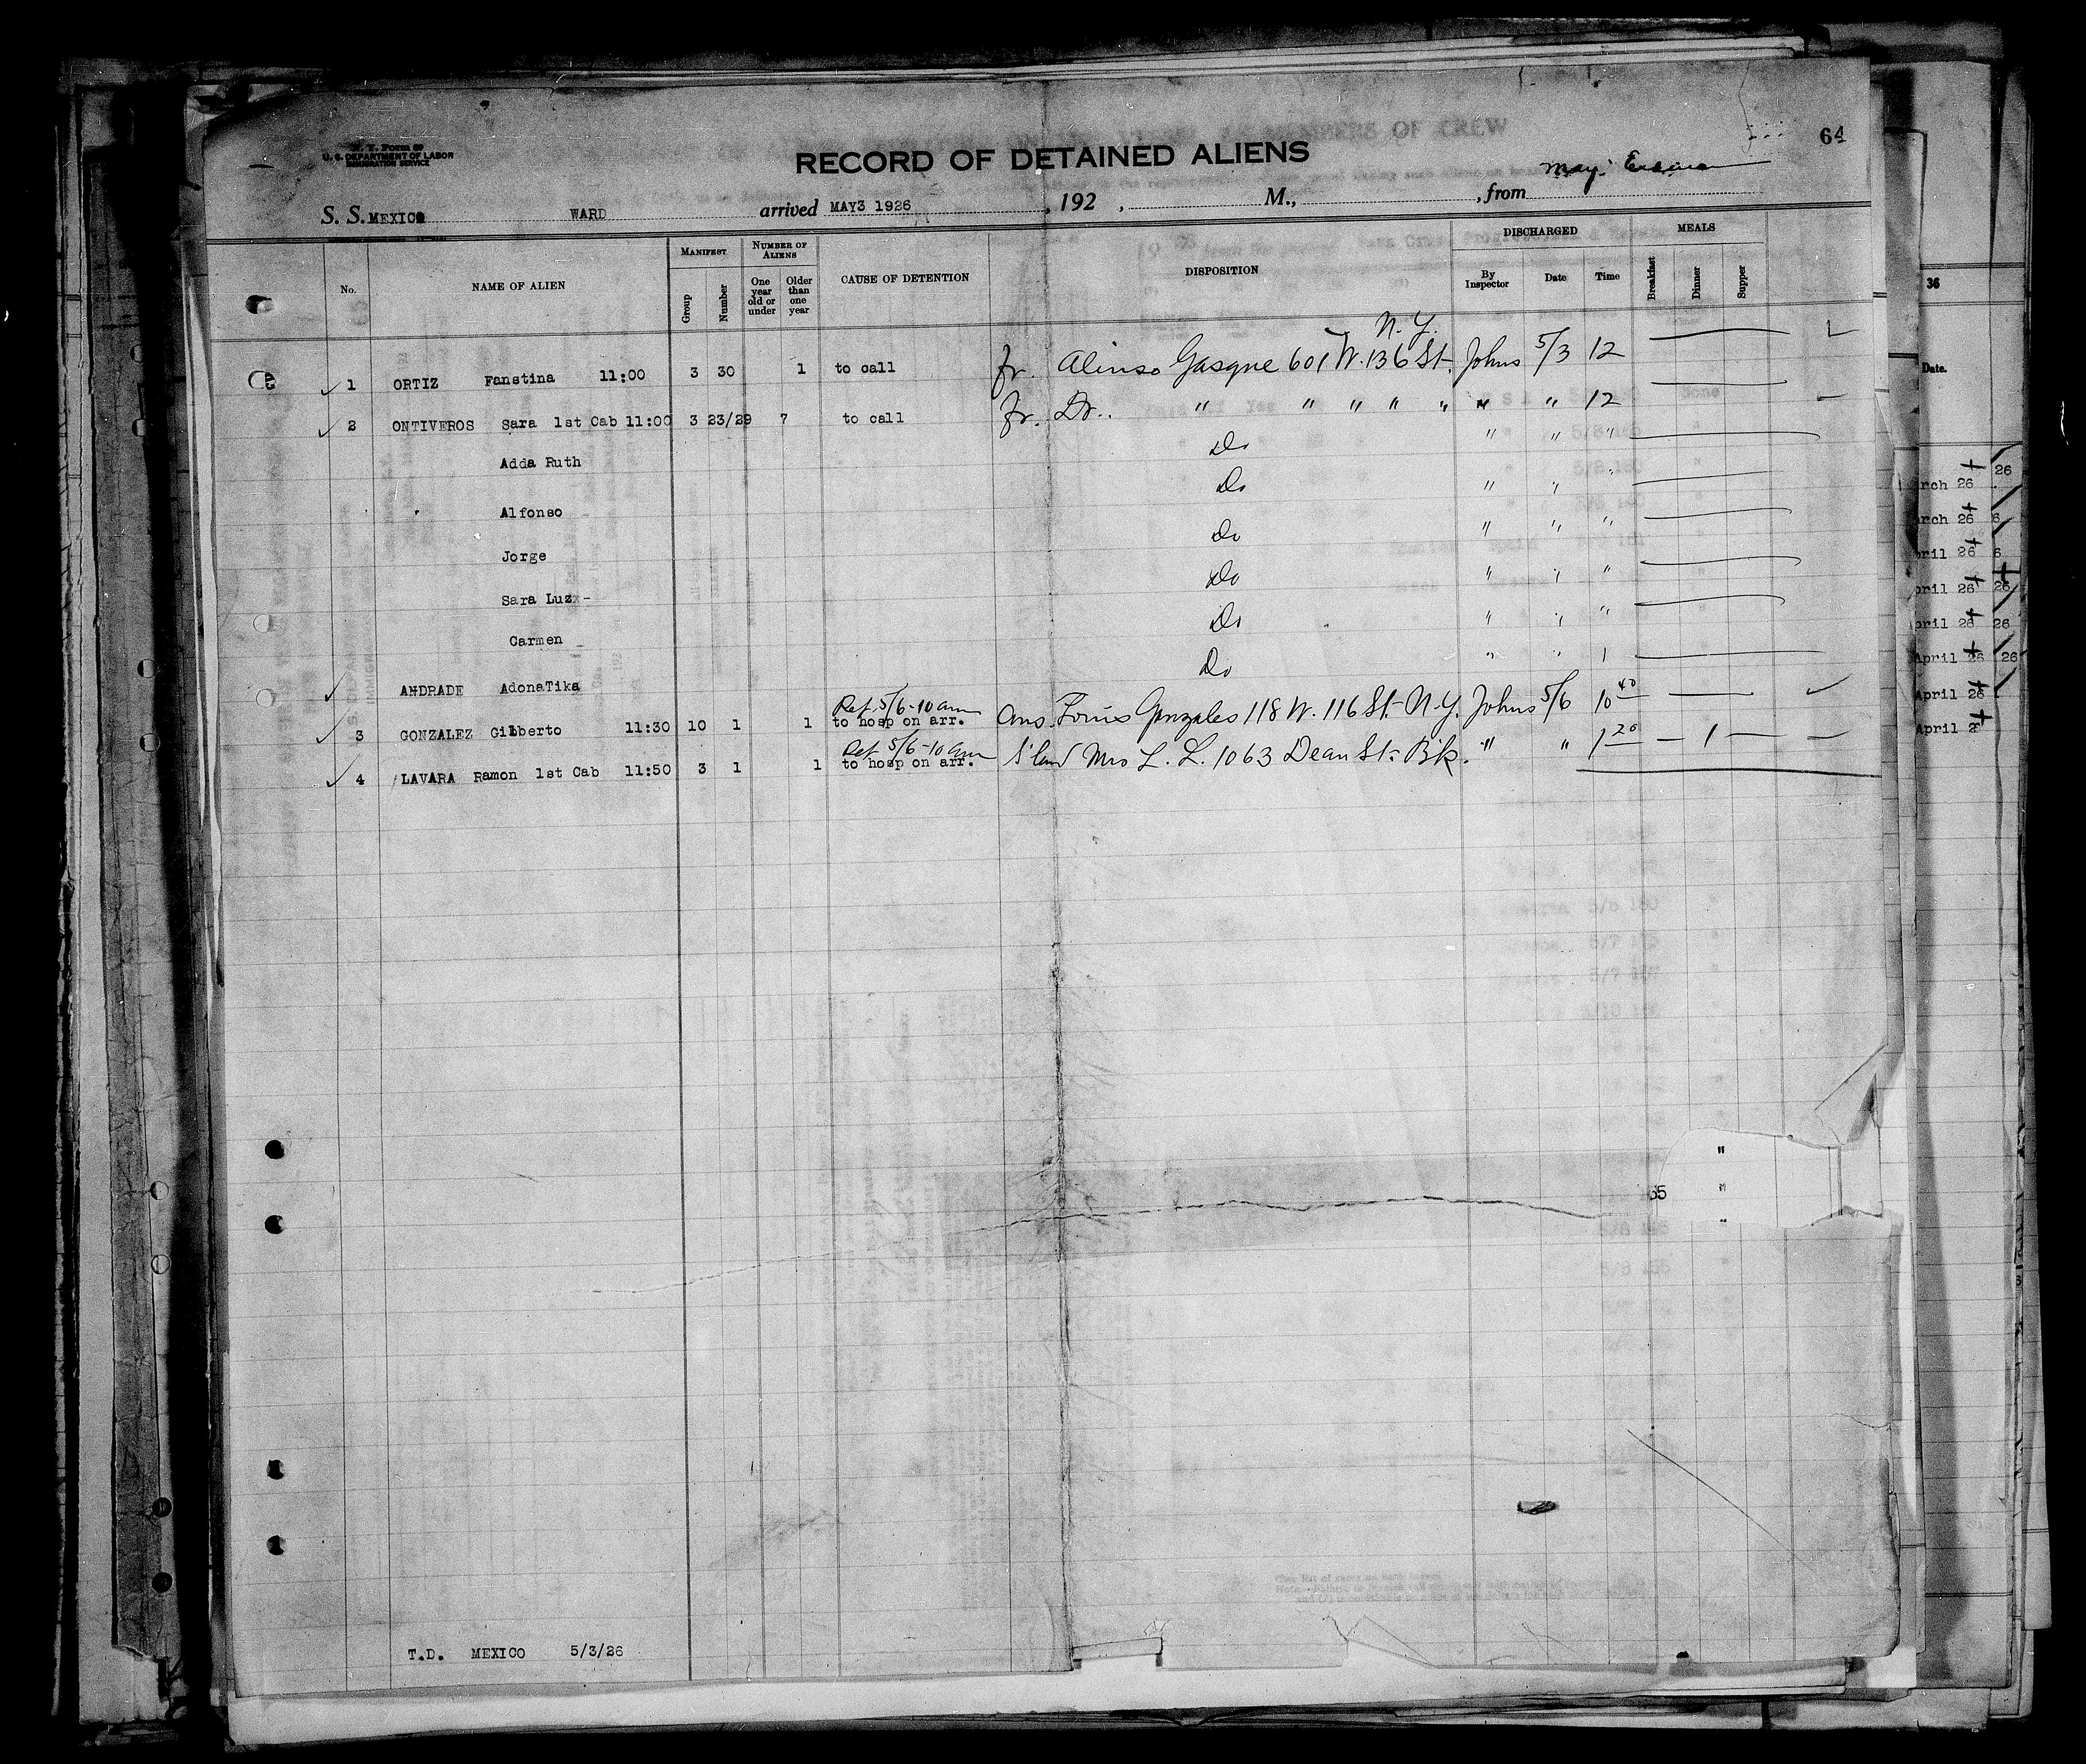 64
N. Y. Form 89
U. S. DEPARTMENT OF LABOR
IMMIGRATION SERVICE
RECORD OF DETAINED ALIENS
S. S. MEXICO WARD arrived MAY3 1926 , 192 , M., , from
No. NAME OF ALIEN MANIFEST Group Number NUMBER OF ALIENS One year old or under Older than one year CAUSE OF DETENTION DISPOSITION DISCHARGED By Inspector Date Time MEALS Breakfast Dinner Supper
N. Y.
1 ORTIZ Fanstina 11:00 3 30 1 to call fr. Alinso Gasque 601 W. 136 St. Johns 5/3 12
2 ONTIVEROS Sara 1st Cab 11:00 3 23/29 7 to call fr. Dr. " " " " " " " 12
Adda Ruth Do " " "
Alfonso Do " " "
Jorge Do " " "
Sara Luz - Do " " "
Carmen Do " " "
ANDRADE AdonaTika Do " " 1
Ret 5/6-10 am
3 GONZALEZ Gilberto 11:30 10 1 1 to hosp on arr. Louis Gonzales 118 W. 116 St. N.Y. Johns 5/6 10 40
Ret 5/6-10 am
4 LAVARA Ramon 1st Cab 11:50 3 1 1 to hosp on arr. Mrs L. L. 1063 Dean St. Bk. " " 1 20 — 1 —
T.D. MEXICO 5/3/26
36
Date.
rch 26
rch 26
pril 26
pril 26
pril 26
April 26
April 26
April 2